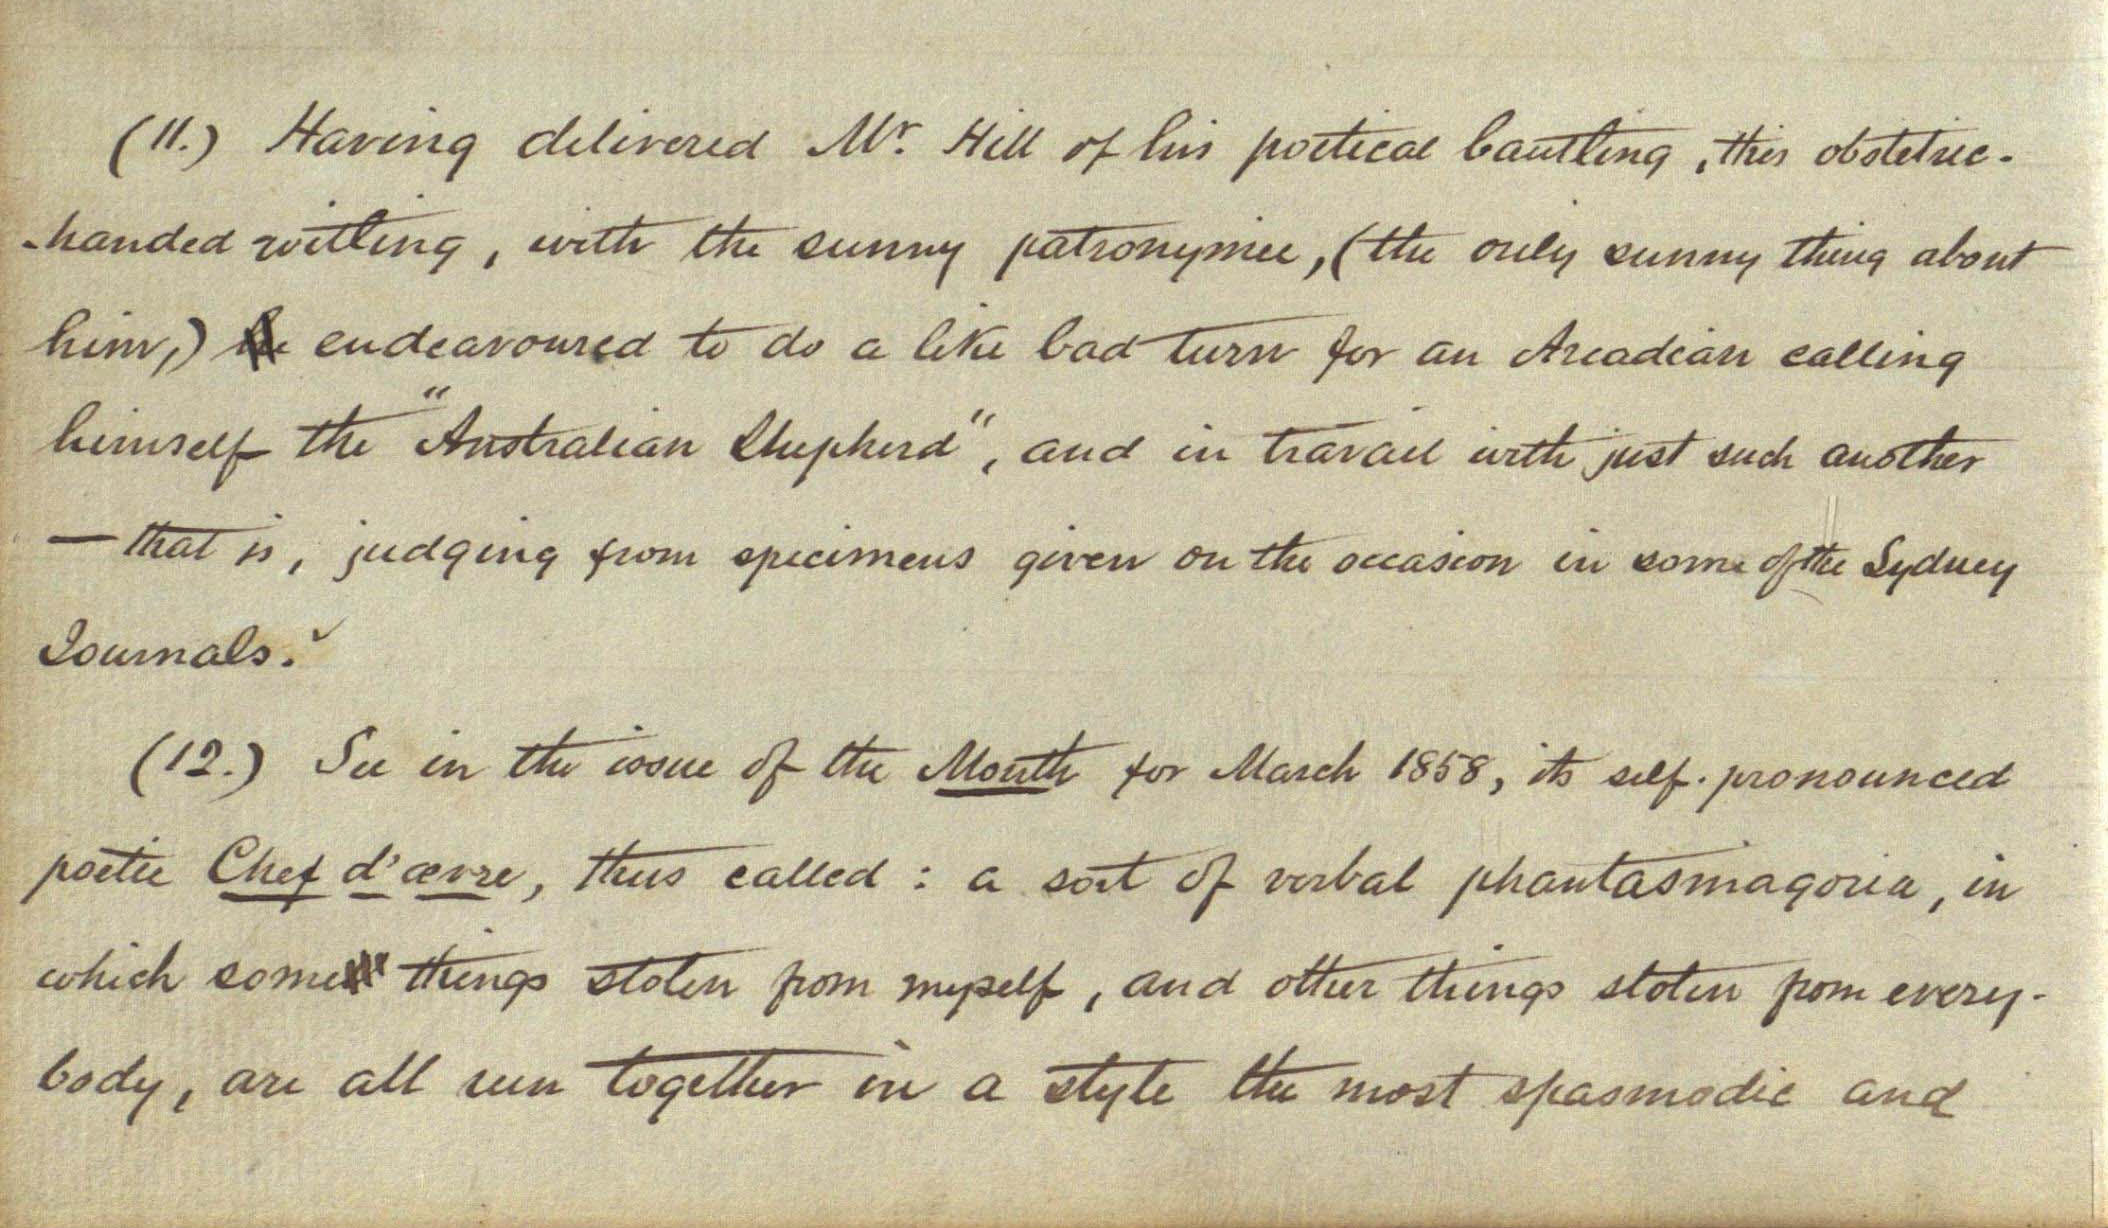 (11.) Having delivered Mr. Hill of his poetical bantling, this obstetric-
-handed witling, with the sunny patronymic, (the only sunny thing about
him,) endeavoured to do a like bad turn for an Arcadian calling
himself the "Australian Shepherd", and in travail with just such another
— that is, judging from specimens given on the occasion in some of the Sydney
Journals.
(12.) See in the issue of the Month for March 1858, its self-pronounced
poetic Chef d'œvre, thus called: a sort of verbal phantasmagoria, in
which some things stolen from myself, and other things stolen from every-
body, are all run together in a style the most spasmodic and